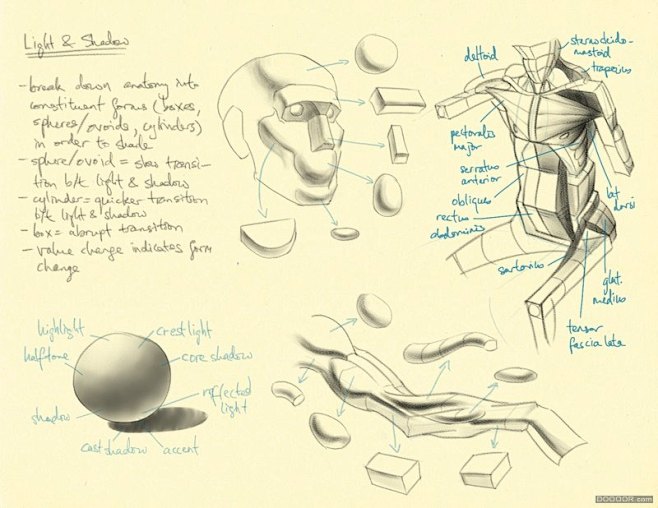 Light & Shadow
- break down anatomy into
constituent forms (boxes,
spheres/ovoids, cylinders)
in order to shade
- sphere/ovoid = slow transi-
tion b/t light & shadow
- cylinder = quicker transition
b/t light & shadow
- box = abrupt transition
- value change indicates form
change
deltoid
sternocleido-
mastoid
trapezius
pectoralis
major
serratus
anterior
oblique
rectus
abdominis
lat.
dorsi
sartorius
glut.
medius
tensor
fascia lata
highlight
crest light
halftone
core shadow
reflected
light
shadow
cast shadow
accent
DOOOOR.com